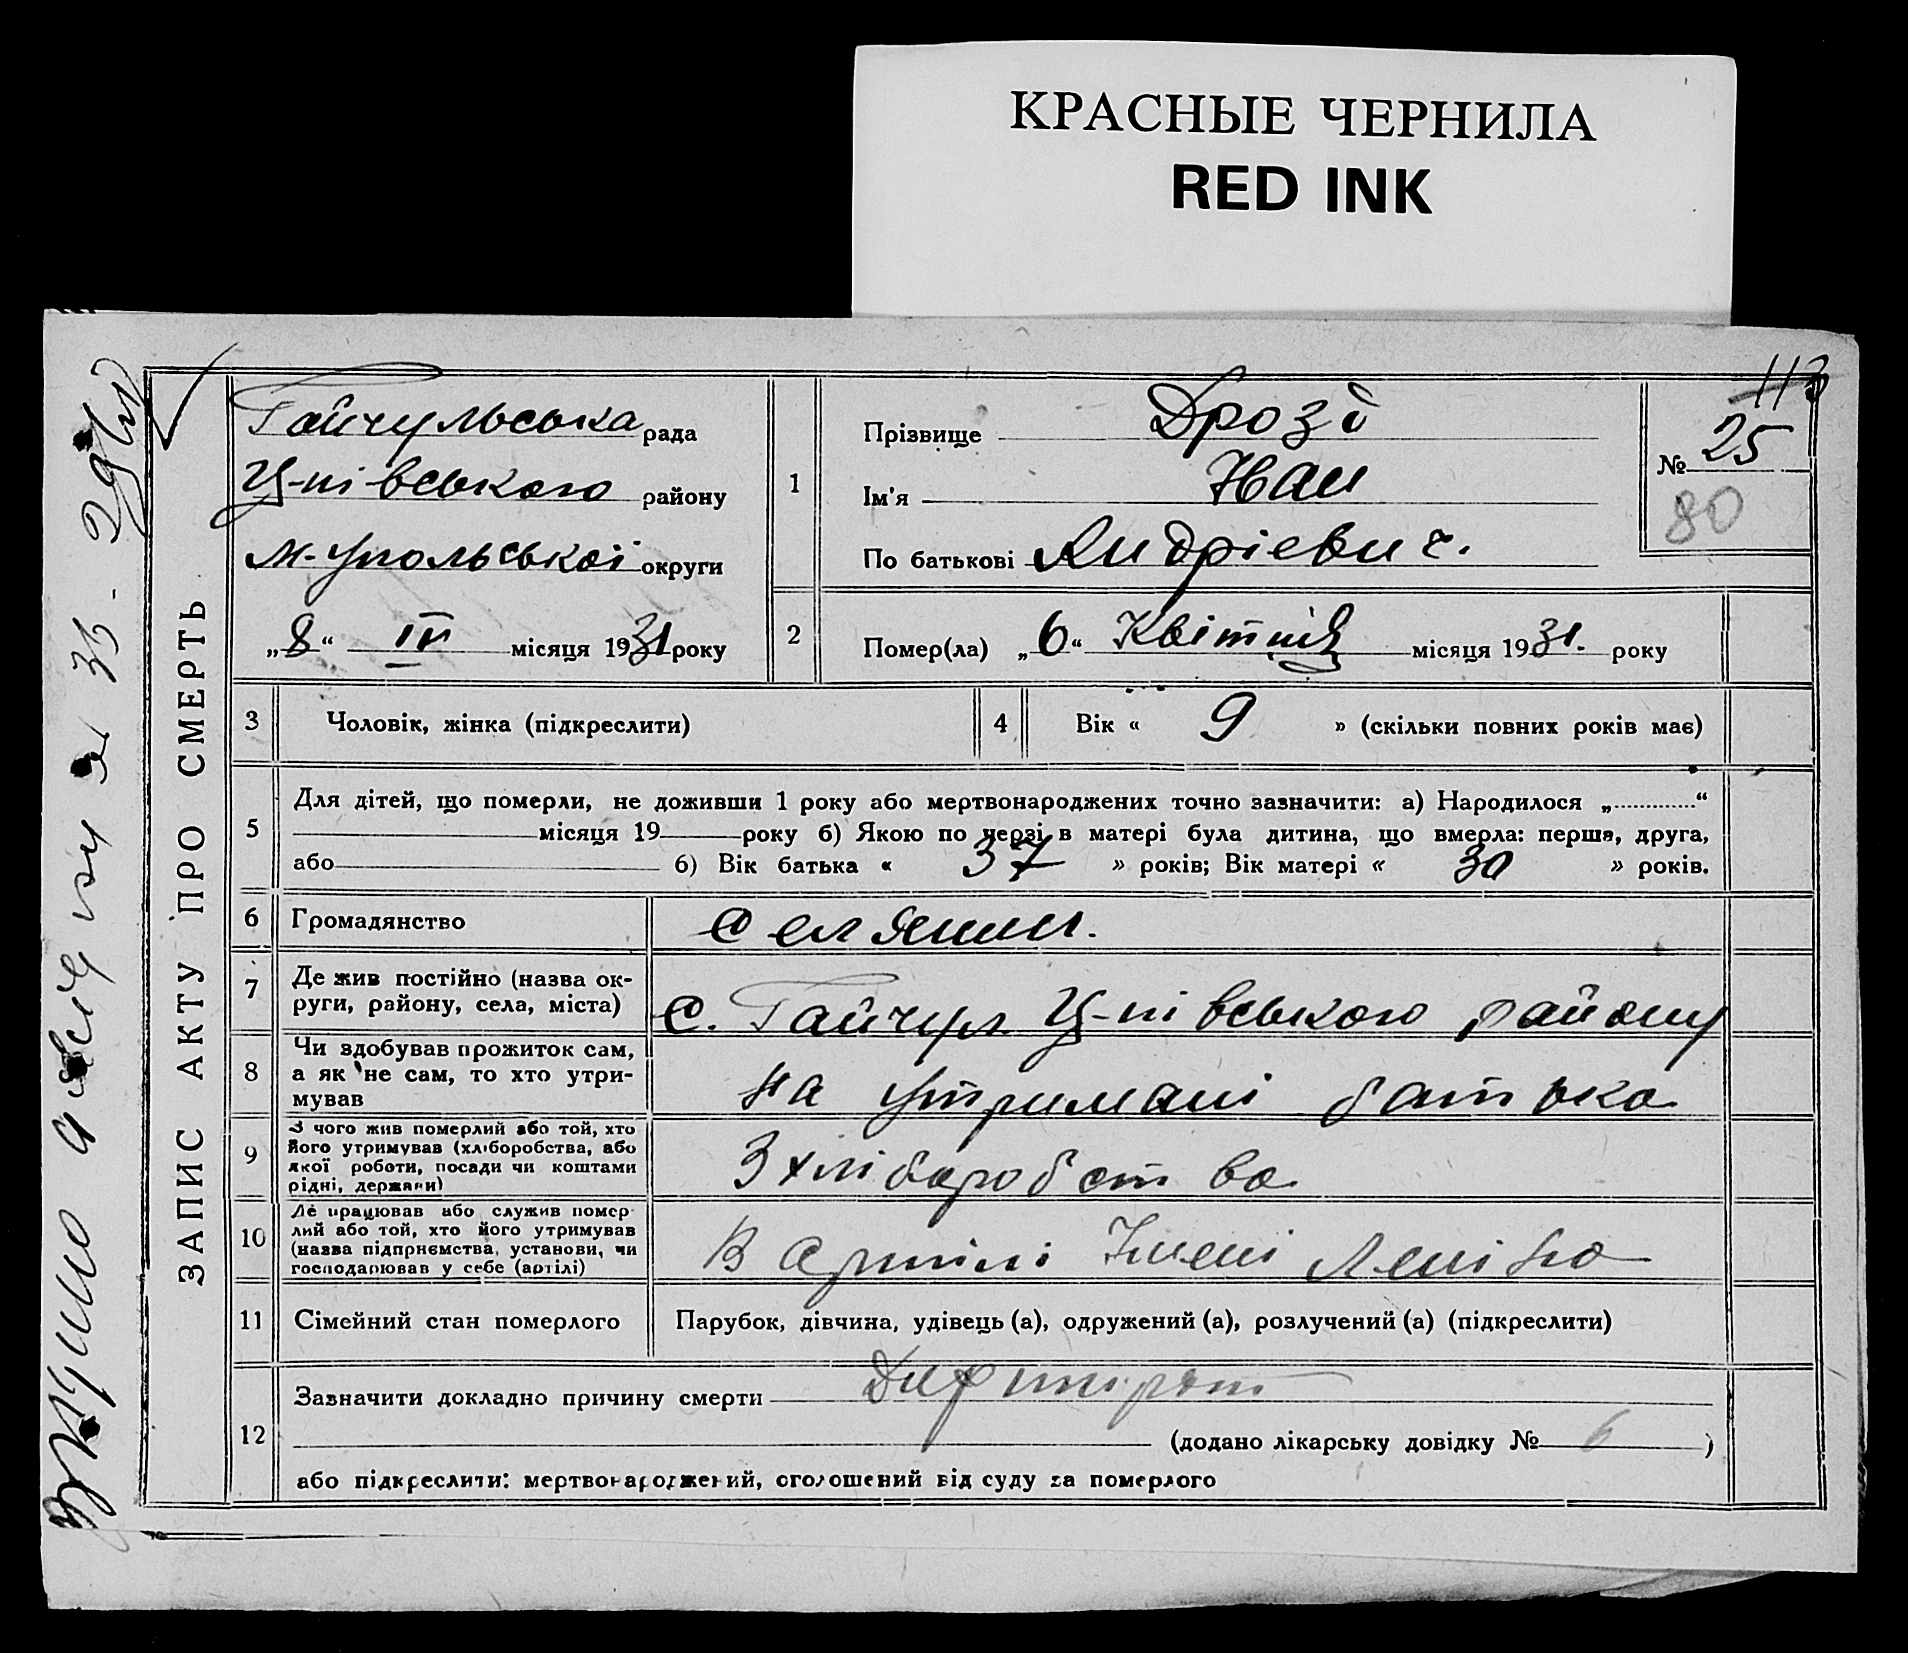 КРАСНЫЕ ЧЕРНИЛА
RED INK
ЗАПИС АКТУ ПРО СМЕРТЬ
Гайчульська рада
Ц-півського району
М-Упольської округи
„8“ IV місяця 1931 року
1
Прізвище Дрозд
Ім'я Иван
По батькові Андріевич.
113
№ 25
80
2 Помер(ла) „6“ Квітня місяця 1931. року
3 Чоловік, жінка (підкреслити)
4 Вік « 9 » (скільки повних років має)
5 Для дітей, що померли, не доживши 1 року або мертвонароджених точно зазначити: а) Народилося „............“
місяця 19 року б) Якою по черзі в матері була дитина, що вмерла: перша, друга,
або 6) Вік батька « 37 » років; Вік матері « 30 » років.
6 Громадянство Селянин.
7 Де жив постійно (назва ок-
руги, району, села, міста) С. Гайчул Ц-півського району
8 Чи здобував прожиток сам,
а як не сам, то хто утри-
мував на утримані батька
9 З чого жив померлий або той, хто
його утримував (хліборобства, або
якої роботи, посади чи коштами
рідні, держави) З хліборобства
10 Де працював або служив помер-
лий або той, хто його утримував
(назва підприємства, установи, чи
господарював у себе (артілі) В Артілі Імені Леніна
11 Сімейний стан померлого Парубок, дівчина, удівець (а), одружений (а), розлучений (а) (підкреслити)
12 Зазначити докладно причину смерти
(додано лікарську довідку № 6 )
або підкреслити: мертвонароджений, оголошений від суду за померлого